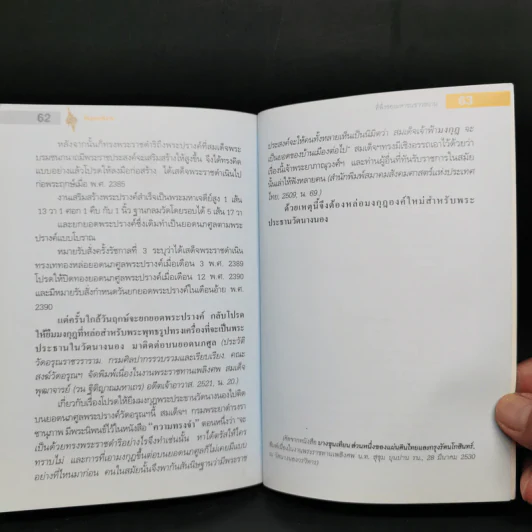 62
หลังจากนั้นก็ทรงพระราชดำริถึงพระปรางค์ที่สมเด็จพระ
บรมชนกนาถมีพระประสงค์จะเสริมสร้างให้สูงขึ้น จึงได้ทรงคิด
แบบอย่างแล้วโปรดให้ลงมือก่อสร้าง ได้เสด็จพระราชดำเนินไป
ก่อพระฤกษ์เมื่อ พ.ศ. 2385
งานเสริมสร้างพระปรางค์สำเร็จเป็นพระมหาเจดีย์สูง 1 เส้น
13 วา 1 ศอก 1 คืบ กับ 1 นิ้ว ฐานกลมวัดโดยรอบได้ 5 เส้น 17 วา
และยกยอดพระปรางค์ซึ่งเดิมทำเป็นยอดนภศูลตามพระ
ปรางค์แบบโบราณ
หมายรับสั่งครั้งรัชกาลที่ 3 ระบุว่าได้เสด็จพระราชดำเนิน
ทรงเททองหล่อยอดนภศูลพระปรางค์เมื่อเดือน 3 พ.ศ. 2389
โปรดให้ปิดทองยอดนภศูลพระปรางค์เมื่อเดือน 12 พ.ศ. 2390
และมีหมายรับสั่งกำหนดวันยกยอดพระปรางค์ในเดือนอ้าย พ.ศ.
2390
แต่ครั้นใกล้วันฤกษ์จะยกยอดพระปรางค์ กลับโปรด
ให้ยืมมงกุฎที่หล่อสำหรับพระพุทธรูปทรงเครื่องที่จะเป็นพระ
ประธานในวัดนางนอง มาติดต่อบนยอดนภศูล (ประวัติ
วัดอรุณราชวราราม. กรมศิลปากรรวบรวมและเรียบเรียง. คณะ
สงฆ์วัดอรุณฯ จัดพิมพ์เนื่องในงานพระราชทานเพลิงศพ สมเด็จ
พุฒาจารย์ (วน ฐิติญาณมหาเถร) อดีตเจ้าอาวาส. 2521, น. 20.)
เกี่ยวกับเรื่องโปรดให้ยืมมงกุฎพระประธานวัดนางนองไปติด
บนยอดนภศูลพระปรางค์วัดอรุณฯนี้ สมเด็จฯ กรมพระยาดำรงรา
ชานุภาพ มีพระนิพนธ์ไว้ในหนังสือ "ความทรงจำ" ตอนหนึ่งว่า "จะ
เป็นด้วยทรงพระราชดำริอย่างไรจึงทำเช่นนั้น หาได้ตรัสให้ใคร
ทราบไม่ และการที่เอามงกุฎขึ้นต่อบนยอดนภศูลก็ไม่เคยมีแบบ
อย่างที่ไหนมาก่อน คนในสมัยนั้นจึงพากันสันนิษฐานว่ามีพระราช
63
ประสงค์จะให้คนทั้งหลายเห็นเป็นนิมิตว่า สมเด็จเจ้าฟ้ามงกุฎ จะ
เป็นยอดของบ้านเมืองต่อไป" สมเด็จฯทรงมีเชิงอรรถเอาไว้ด้วยว่า
เรื่องนี้เจ้าพระยาภาณุวงศ์ฯ และท่านผู้อื่นที่ทันรับราชการในสมัย
นั้นเล่าให้ฟังหลายคน (สำนักพิมพ์สมาคมสังคมศาสตร์แห่งประเทศ
ไทย. 2509, น. 69.)
ด้วยเหตุนี้จึงต้องหล่อมงกุฎองค์ใหม่สำหรับพระ
ประธานวัดนางนอง
(คัดจากหนังสือ บางขุนเทียน ส่วนหนึ่งของแผ่นดินไทยและกรุงรัตนโกสินทร์.
พิมพ์เนื่องในงานพระราชทานเพลิงศพ น.ต. สุขุม บุนปาน รน., 28 มีนาคม 2530
ณ วัดนางนองวรวิหาร)